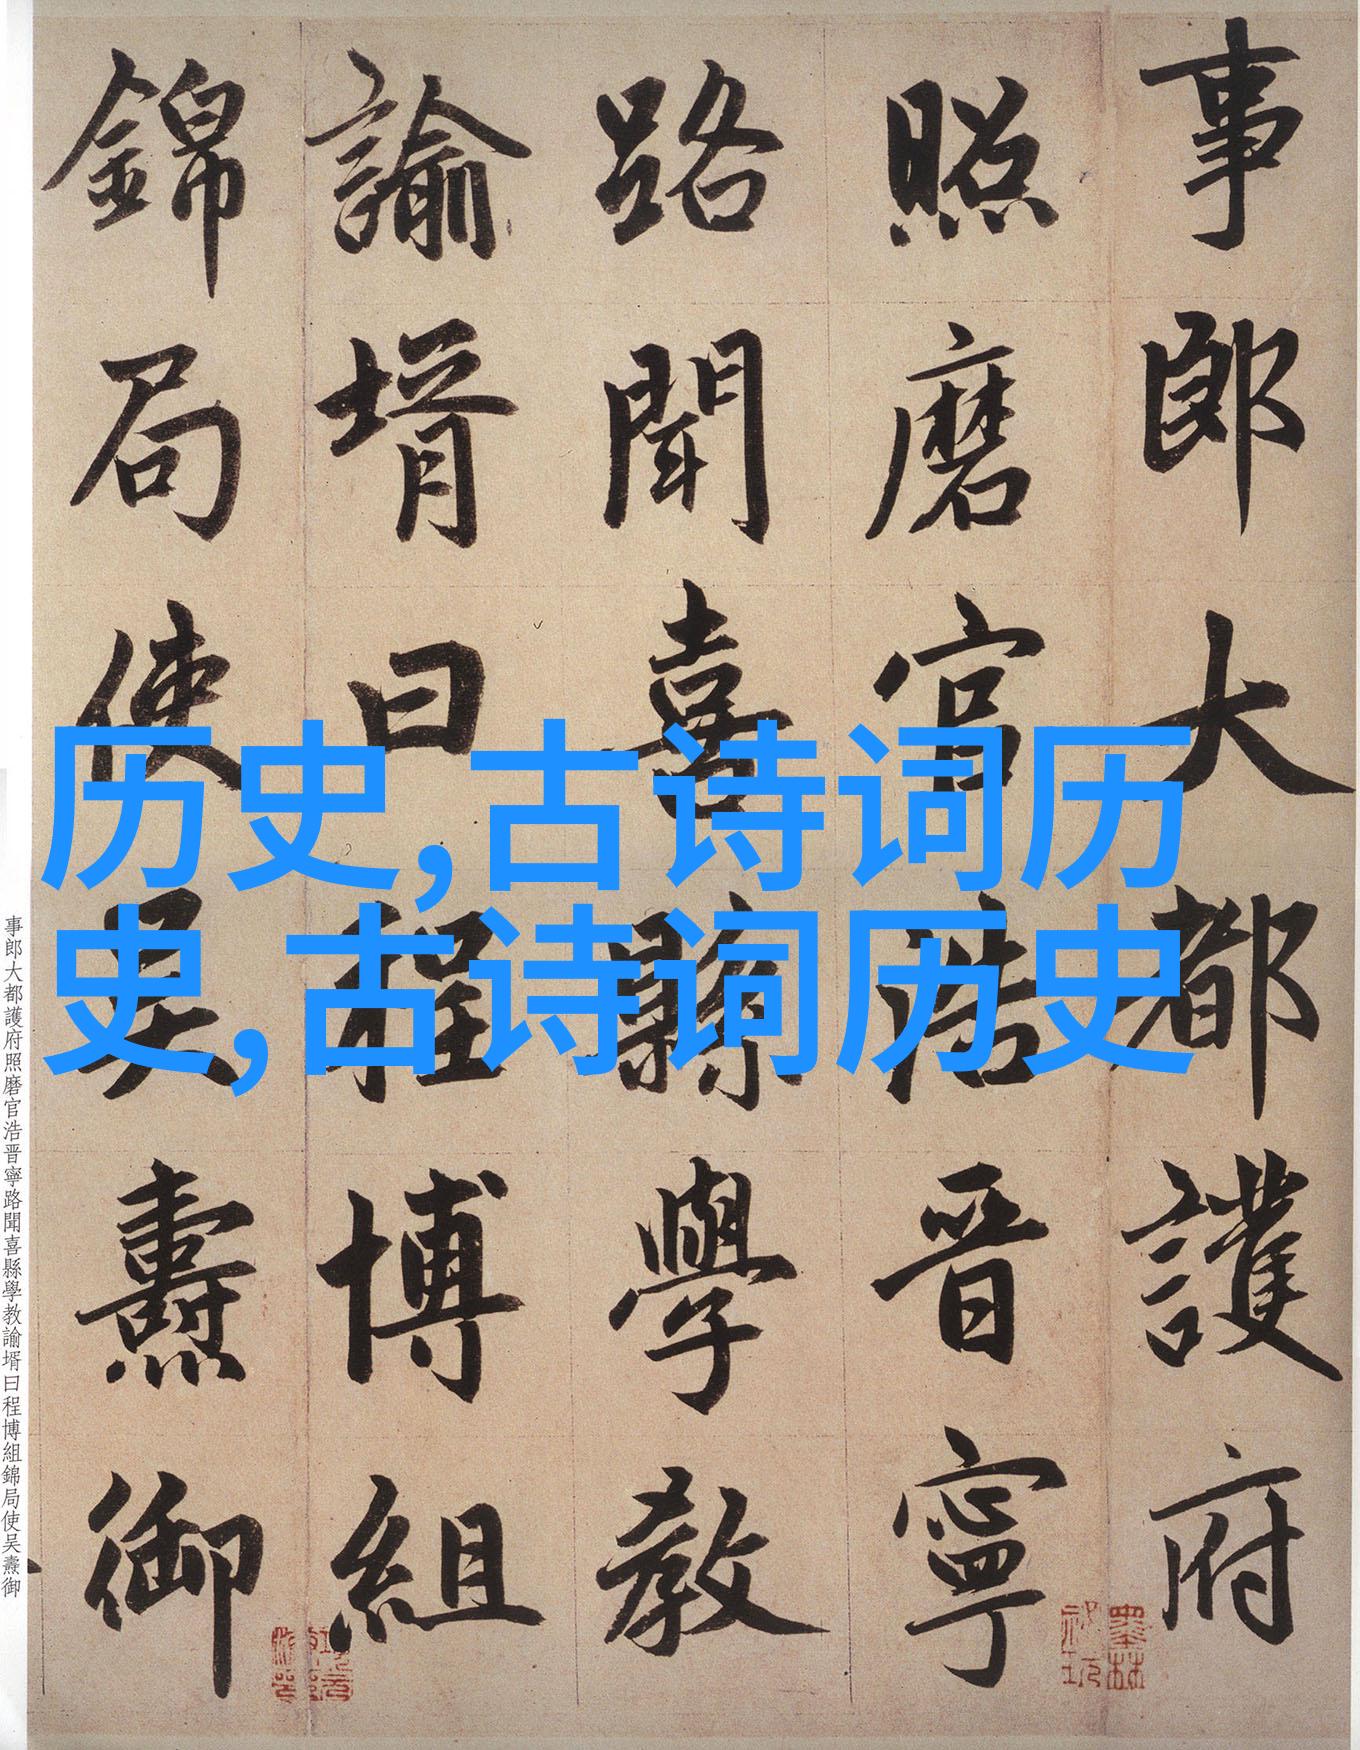 事郎大都護府
照磨官浩晋寧
路聞喜縣學教
諭壻曰程博組
錦局使吴燾御
历史,古诗词历
史,古诗词历史
事郎大都護府照磨官浩晋寧路聞喜縣學教諭壻曰程博組錦局使吴燾御